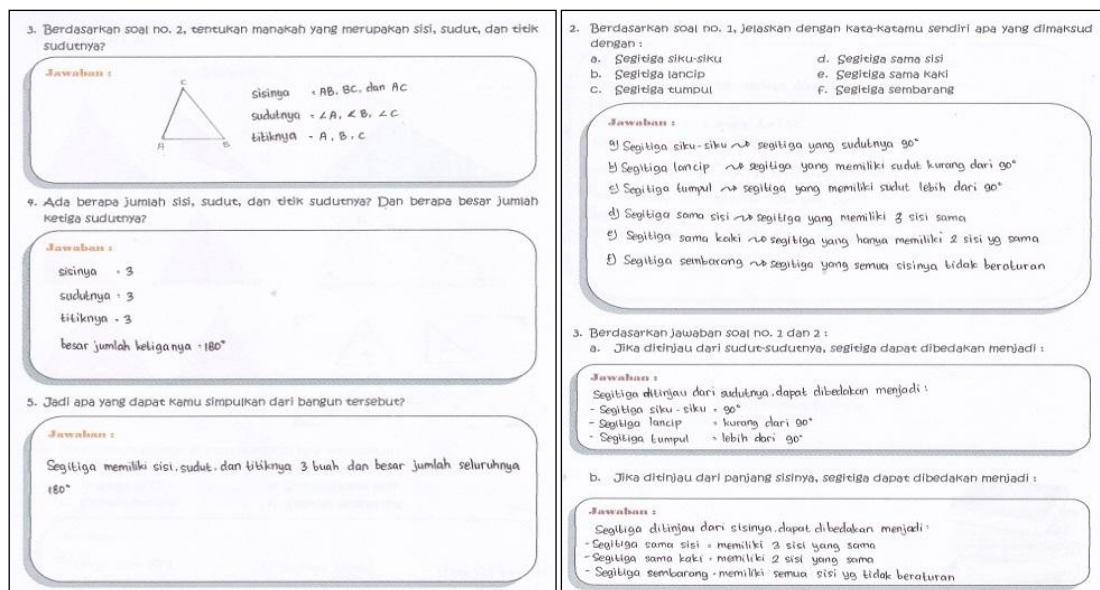 3. Berdasarkan soal no. 2, tentukan manakah yang merupakan sisi, sudut, dan titik
sudutnya?
Jawaban :
C
A
B
sisinya = AB, BC, dan AC
sudutnya = ∠A, ∠B, ∠C
titiknya = A, B, C
4. Ada berapa jumlah sisi, sudut, dan titik sudutnya? Dan berapa besar jumlah
ketiga sudutnya?
Jawaban :
sisinya = 3
sudutnya = 3
titiknya = 3
besar jumlah ketiganya = 180°
5. Jadi apa yang dapat kamu simpulkan dari bangun tersebut?
Jawaban :
Segitiga memiliki sisi, sudut, dan titiknya 3 buah dan besar jumlah seluruhnya
180°
2. Berdasarkan soal no. 1, jelaskan dengan kata-katamu sendiri apa yang dimaksud
dengan :
a. Segitiga siku-siku
b. Segitiga lancip
c. Segitiga tumpul
d. Segitiga sama sisi
e. Segitiga sama kaki
f. Segitiga sembarang
Jawaban :
a) Segitiga siku-siku ⇝ segitiga yang sudutnya 90°
b) Segitiga lancip ⇝ segitiga yang memiliki sudut kurang dari 90°
c) Segitiga tumpul ⇝ segitiga yang memiliki sudut lebih dari 90°
d) Segitiga sama sisi ⇝ segitiga yang memiliki 3 sisi sama
e) Segitiga sama kaki ⇝ segitiga yang hanya memiliki 2 sisi yg sama
f) Segitiga sembarang ⇝ segitiga yang semua sisinya tidak beraturan
3. Berdasarkan jawaban soal no. 1 dan 2 :
a. Jika ditinjau dari sudut-sudutnya, segitiga dapat dibedakan menjadi :
Jawaban :
Segitiga ditinjau dari sudutnya, dapat dibedakan menjadi :
- Segitiga siku-siku = 90°
- Segitiga lancip = kurang dari 90°
- Segitiga tumpul = lebih dari 90°
b. Jika ditinjau dari panjang sisinya, segitiga dapat dibedakan menjadi :
Jawaban :
Segitiga ditinjau dari sisinya, dapat dibedakan menjadi :
- Segitiga sama sisi = memiliki 3 sisi yang sama
- Segitiga sama kaki = memiliki 2 sisi yang sama
- Segitiga sembarang = memiliki semua sisi yg tidak beraturan